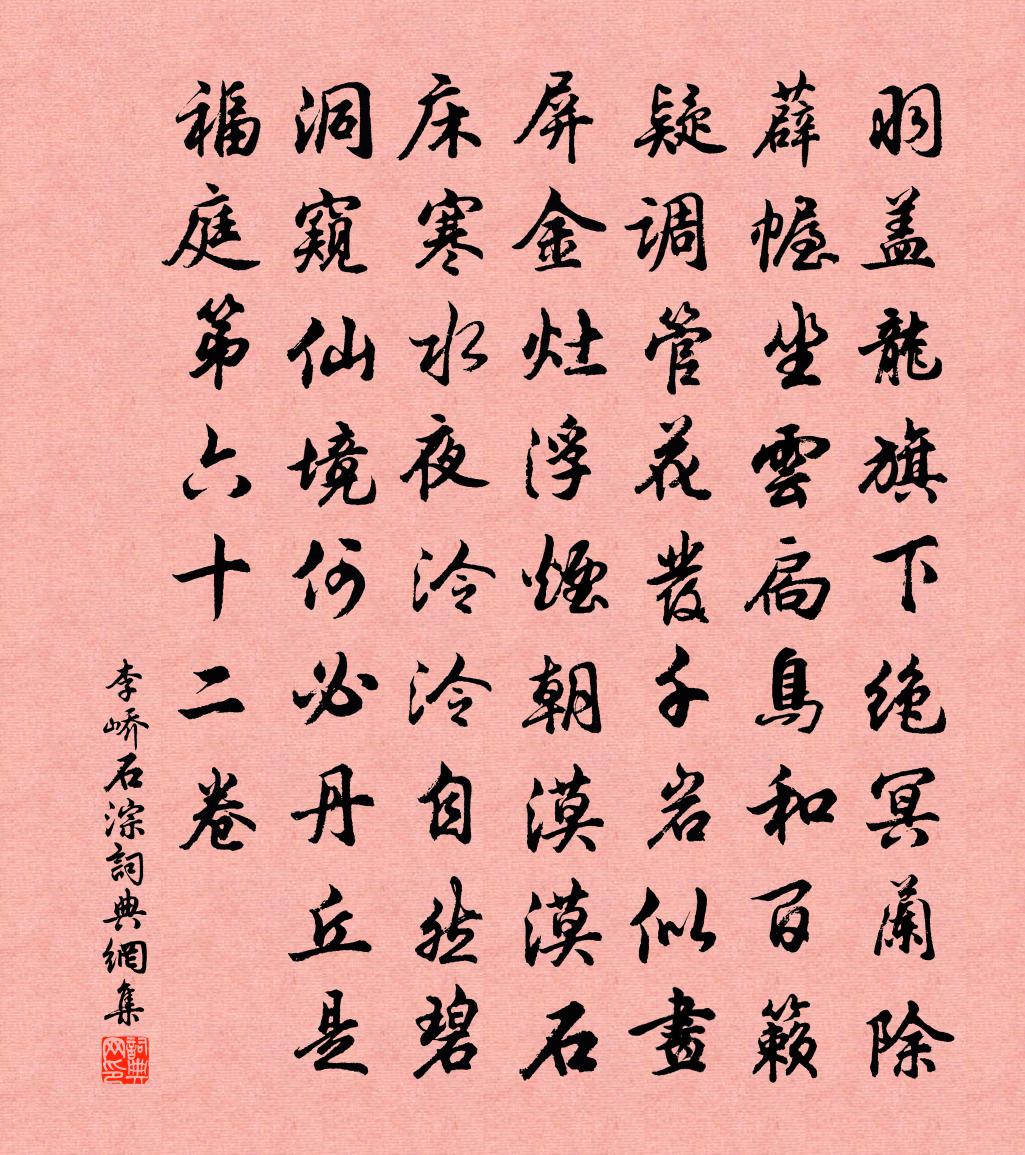 羽盖龍旗下绝冥蘭除
薜幄坐雲扃鳥和百籟
疑调管花發千岩似畫
屏金灶浮煙朝漠漠石
床寒水夜泠泠自然碧
洞窺仙境何必丹丘是
福庭第六十二卷
李峤石淙詞典網集
詞典网印